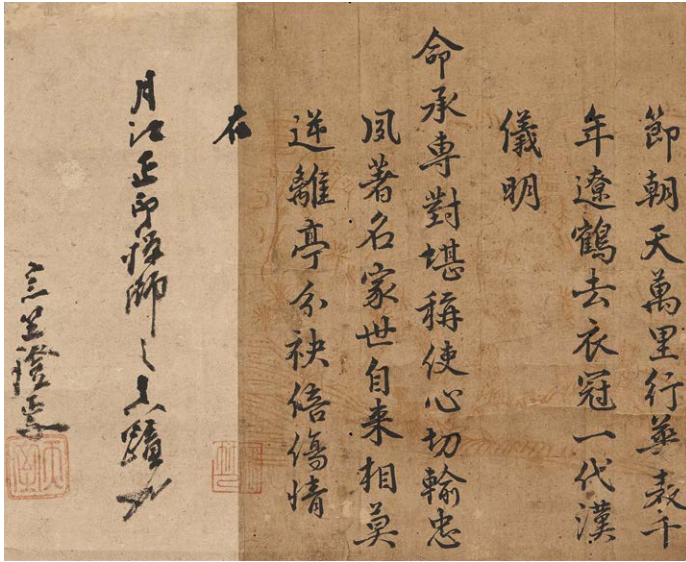 節朝天萬里行華表千
年遼鶴去衣冠一代漢
儀明
命承專對堪稱使心切輸忠
夙著名家世自来相莫
逆離亭分袂倍傷情
在
月江正印禅師之真蹟也
證焉